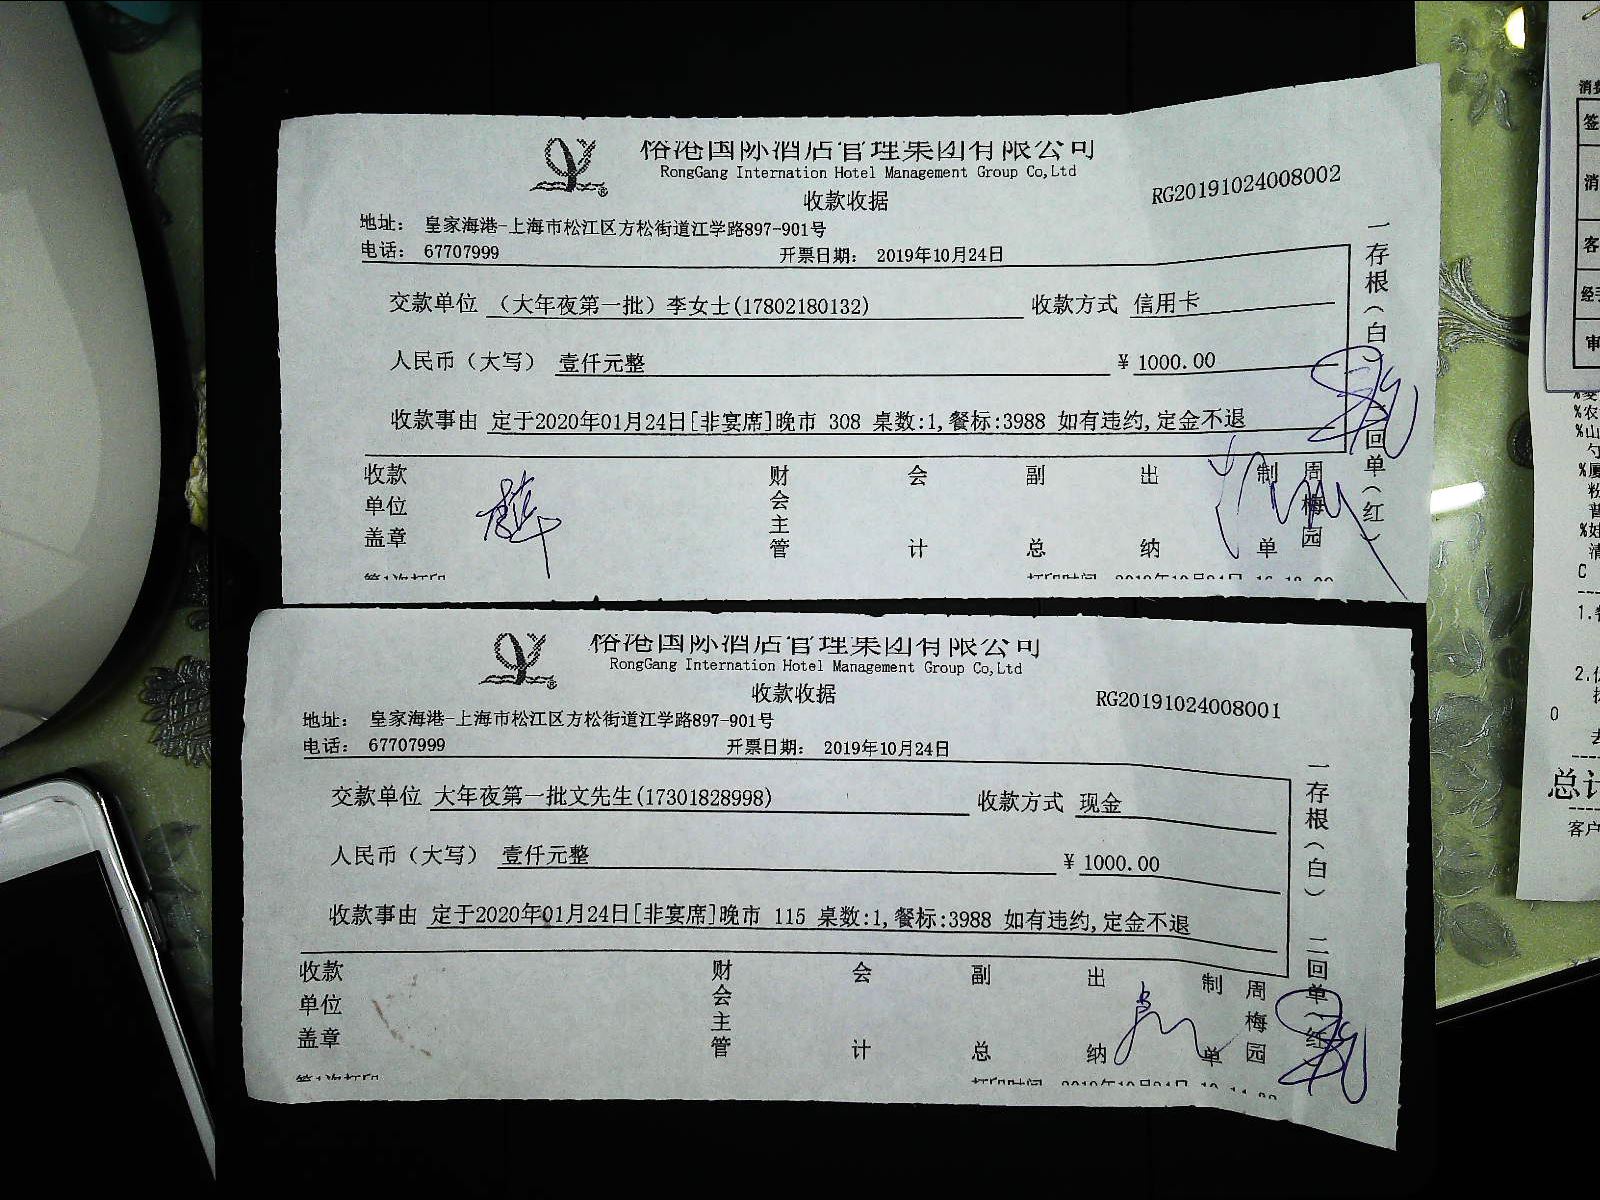 裕港国际酒店管理集团有限公司
RongGang Internation Hotel Management Group Co,Ltd
收款收据
RG20191024008002
地址： 皇家海港-上海市松江区方松街道江学路897-901号
电话： 67707999 开票日期： 2019年10月24日
交款单位 （大年夜第一批）李女士(17802180132) 收款方式 信用卡
人民币（大写） 壹仟元整 ¥ 1000.00
收款事由 定于2020年01月24日[非宴席]晚市 308 桌数:1,餐标:3988 如有违约,定金不退
收款单位盖章 财会主管 会计 副总 出纳 制单 周梅园
一存根（白） 二回单（红）
第1次打印 打印时间 2019年10月24日
裕港国际酒店管理集团有限公司
RongGang Internation Hotel Management Group Co,Ltd
收款收据
RG20191024008001
地址： 皇家海港-上海市松江区方松街道江学路897-901号
电话： 67707999 开票日期： 2019年10月24日
交款单位 大年夜第一批文先生(17301828998) 收款方式 现金
人民币（大写） 壹仟元整 ¥ 1000.00
收款事由 定于2020年01月24日[非宴席]晚市 115 桌数:1,餐标:3988 如有违约,定金不退
收款单位盖章 财会主管 会计 副总 出纳 制单 周梅园
一存根（白） 二回单（红）
第1次打印 打印时间 2019年10月24日
签
消
客
经手
审
%农
%山
C
1.
2.
0
总计
客户